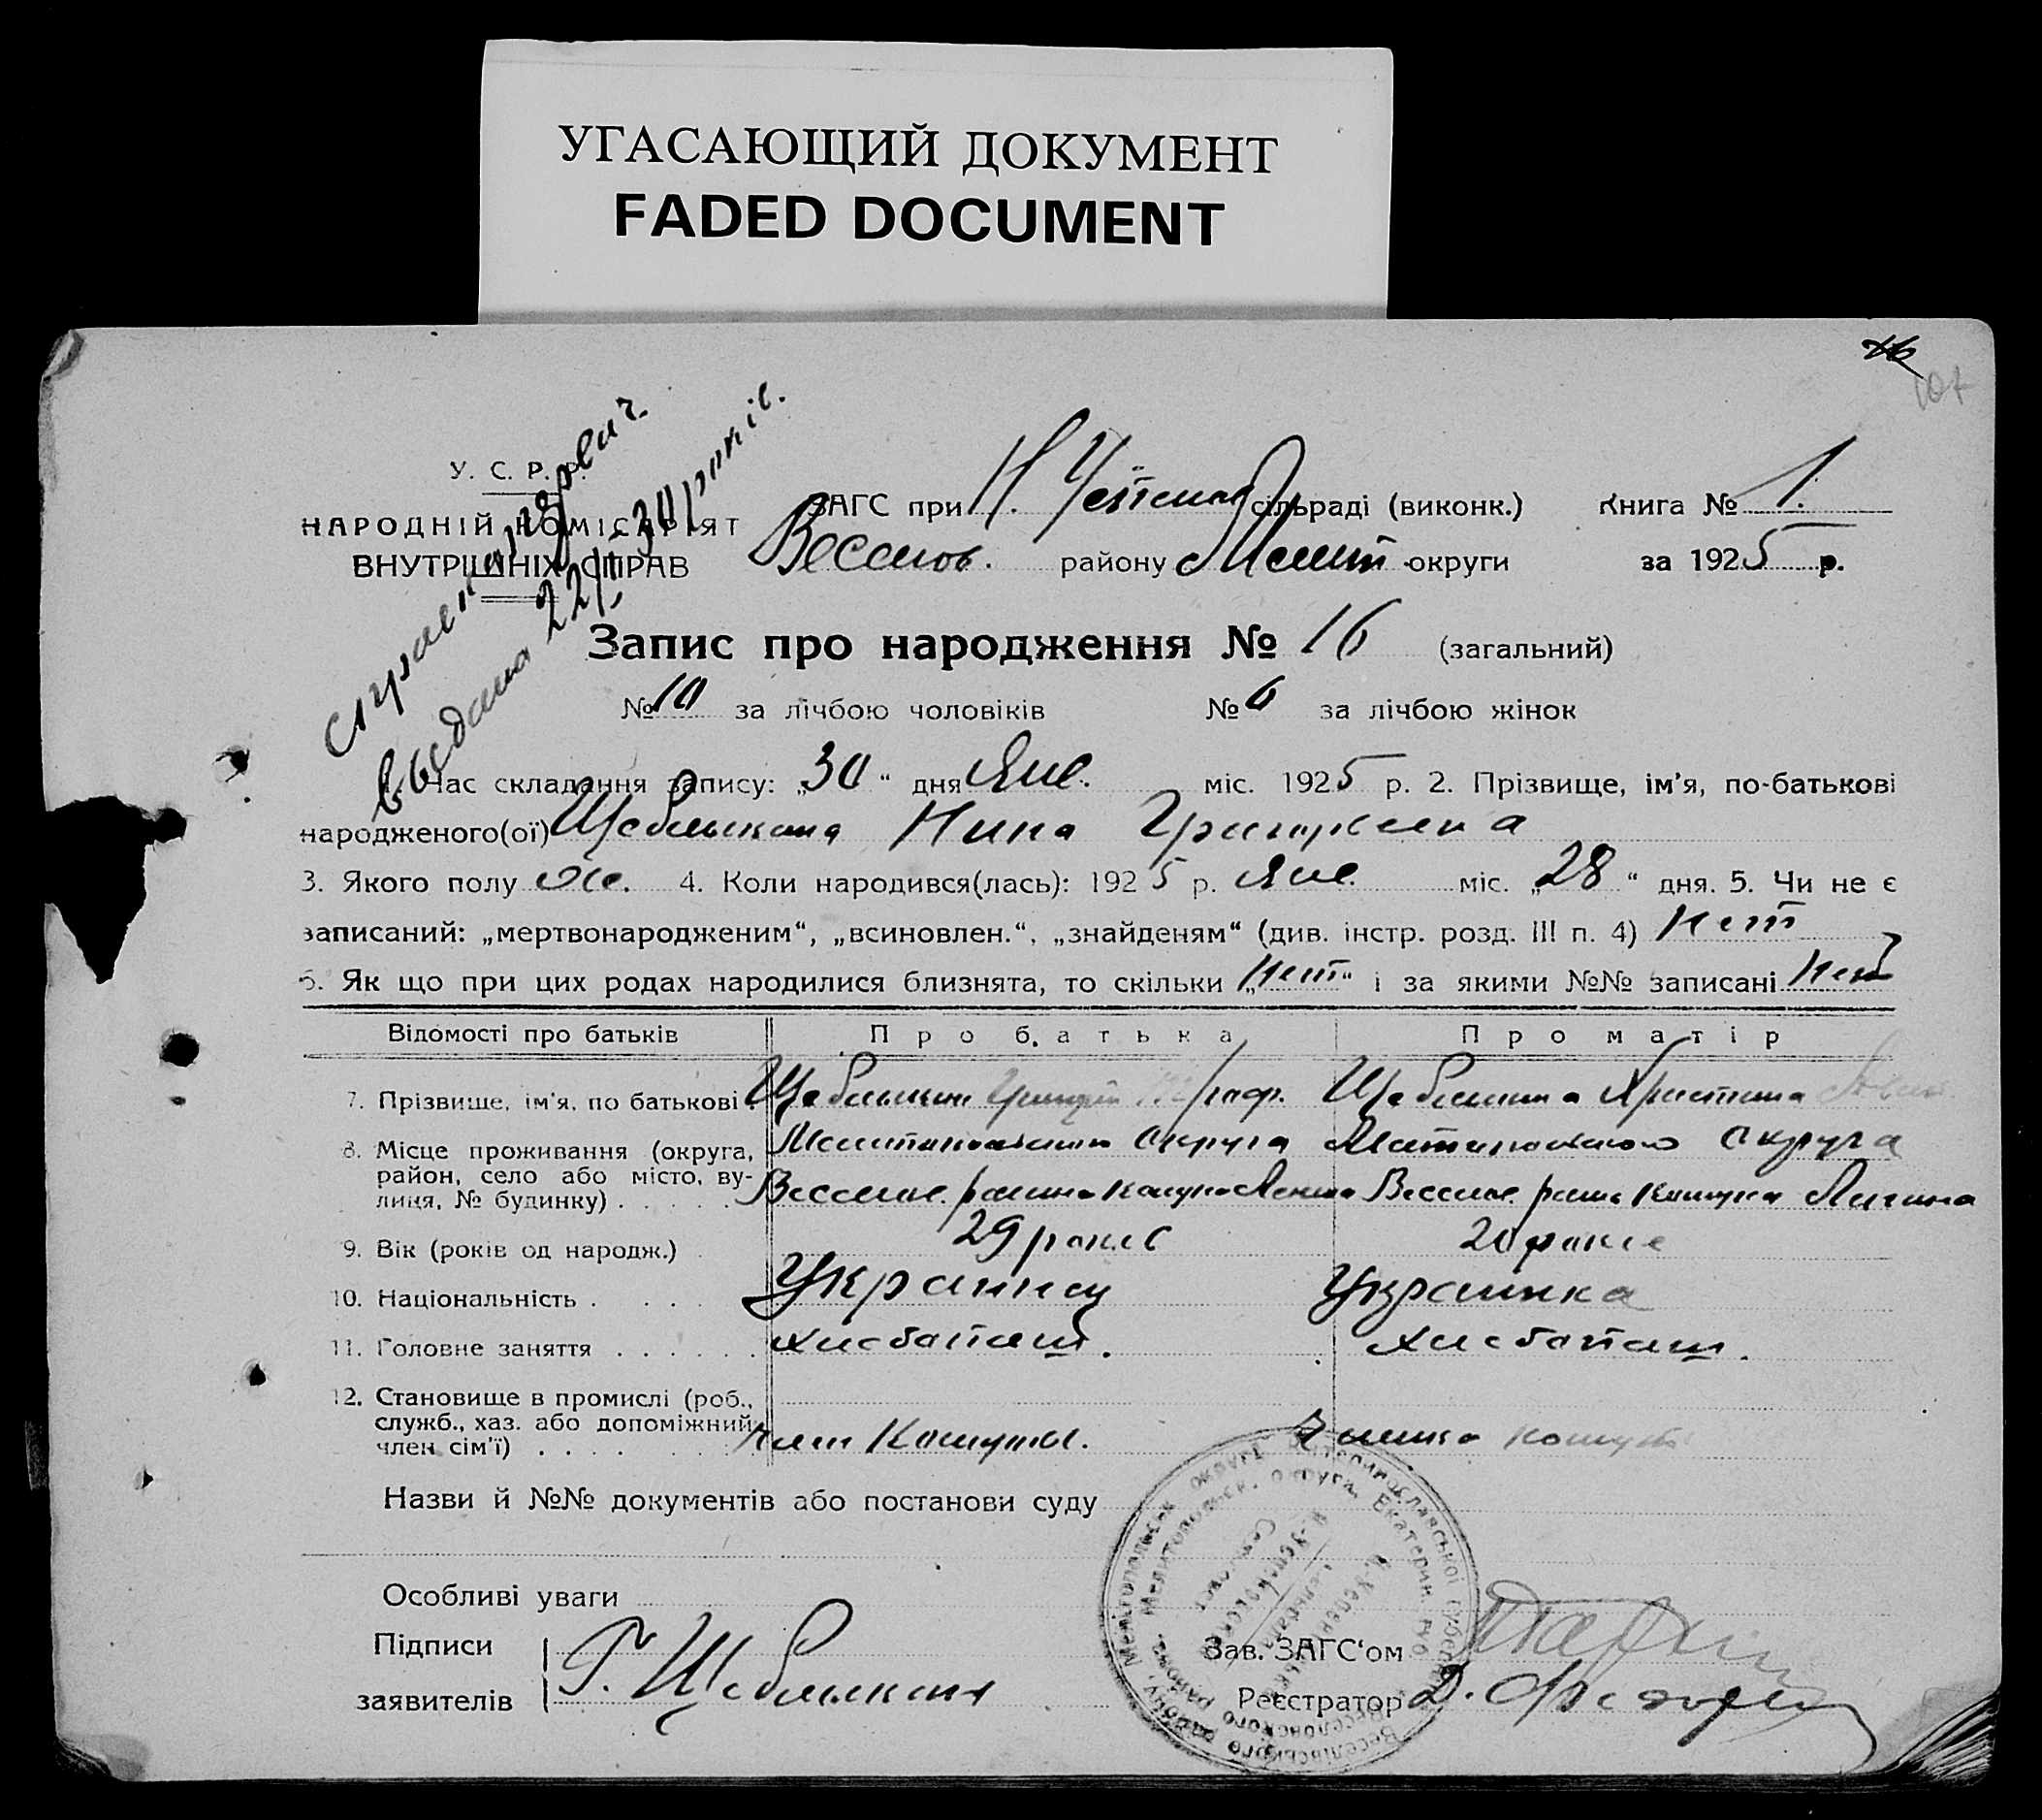 УГАСАЮЩИЙ ДОКУМЕНТ
FADED DOCUMENT
16
107
У. С. Р. Р.
НАРОДНІЙ КОМІСАРІЯТ
ВНУТРІШНІХ СПРАВ
видана 22/ІІ 30 рокіс.
ЗАГС при Н. Успенской сільраді (виконк.) Книга № 1.
Веселов. району Мелит округи за 1925 р.
Запис про народження № 16 (загальний)
№ 10 за лічбою чоловіків № 6 за лічбою жінок
1. Час складання запису: „30“ дня Янв. міс. 1925 р. 2. Прізвище, ім'я, по-батькові
народженого(ої) Щеблыкина Нина Григорьевна
3. Якого полу Же. 4. Коли народився(лась): 1925 р. Янв. міс. „28“ дня. 5. Чи не є
записаний: „мертвонародженим“, „всиновлен.“, „знайденям“ (див. інстр. розд. III п. 4) Нет
6. Як що при цих родах народилися близнята, то скільки „Нет“ і за якими №№ записані Нет
Відомості про батьків Про батька Про матір
7. Прізвище, ім'я, по батькові Щеблыкин Григорій Щеблыкина Христина
8. Місце проживання (округа, район, село або місто, вулиця, № будинку) Мелитопольська Округа Мелитопольсько Округа
Веселов. района комуна Ленина Веселов. район Комуна Ленина
9. Вік (років од народж.) 29 рокив 20 рокив
10. Національність Украинец Украинка
11. Головне заняття Хлебопаш. Хлебопаш.
12. Становище в промислі (роб., служб., хаз. або допоміжний член сім'ї) Член Комуны. Членка комуны
Назви й №№ документів або постанови суду
Особливі уваги
Підписи
заявителів Г. Щеблыкин
Зав. ЗАГС'ом
Реєстратор Д.